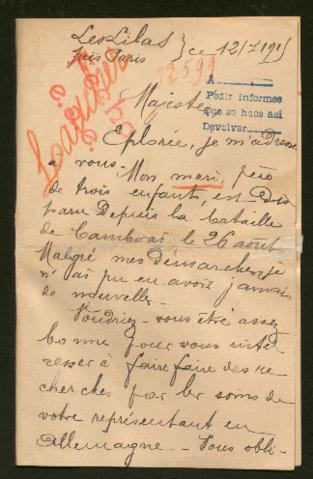 Les Lilas } ce 12/7 1915
près Paris
22599
A
Pedir informes
que se hace así
Devolver
Majesté
Eplorée, je m'adresse
a vous. Mon mari, père
de trois enfants, est Dis
paru Depuis la bataille
de Cambrai le 26 aout.
Malgré mes démarches, je
n'ai pu en avoir jamais
de nouvelle.
Voudriez-vous être assez
bonne pour vous inté
resser à faire faire des re
cherches par les soins de
votre représentant en
Allemagne - Vous obli-